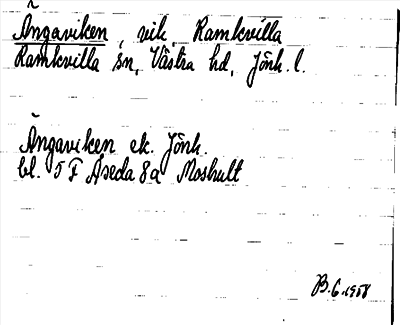 Ängaviken, vik, Ramkvilla
Ramkvilla sn, Västra hd, Jönk. l.
Ängaviken ek. Jönk.
bl. 5 F Åseda 8a Moshult
B. G. 1958